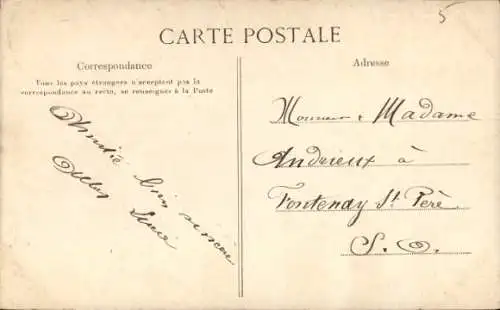 CARTE POSTALE
5
Correspondance
Tous les pays étrangers n'acceptent pas la
correspondance au recto, se renseigner à la Poste
Amitié bien sincère
Adresse
Monsieur & Madame
Andrieux à
Fontenay St. Père
S. O.